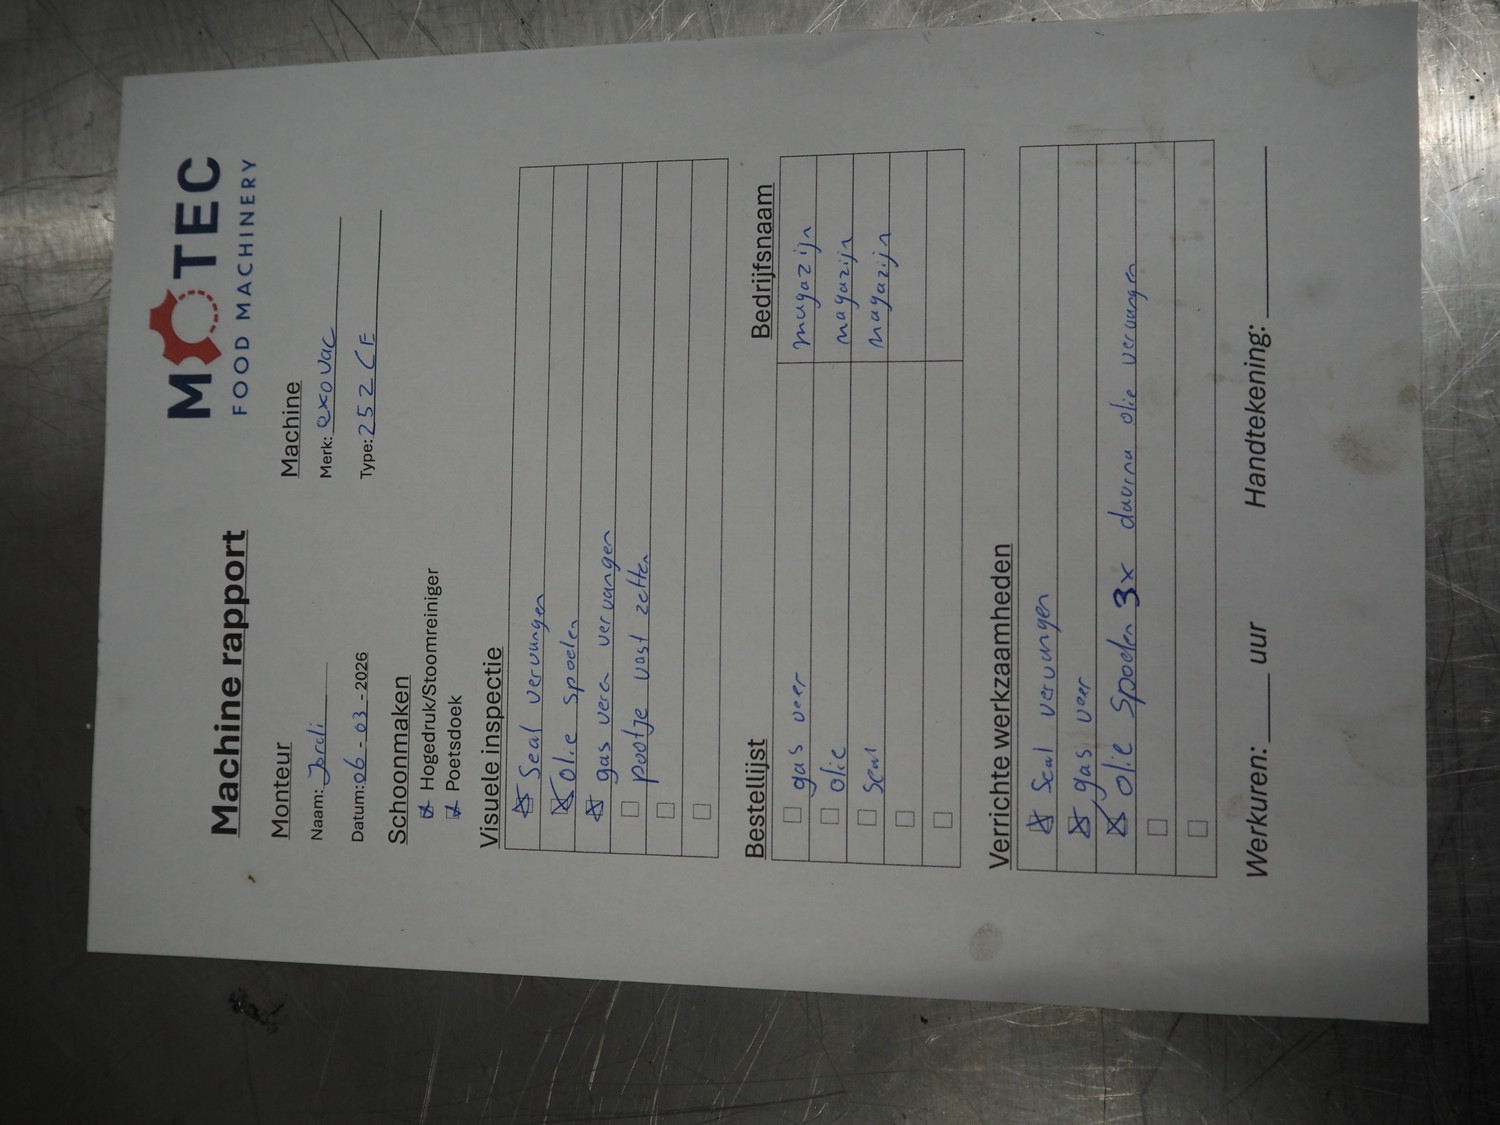 MOTEC
FOOD MACHINERY
Machine rapport
Monteur
Naam: Jordi
Datum: 06-03-2026
Machine
Merk: exovac
Type: 252 CE
Schoonmaken
Hogedruk/Stoomreiniger
Poetsdoek
Visuele inspectie
Seal vervangen
Olie spoelen
gas veren vervangen
pootje vast zetten
Bestellijst Bedrijfsnaam
gas veer magazijn
olie magazijn
seal magazijn
Verrichte werkzaamheden
Seal vervangen
gas veer
olie Spoelen 3x daarna olie vervangen
Werkuren: ____ uur Handtekening: ____